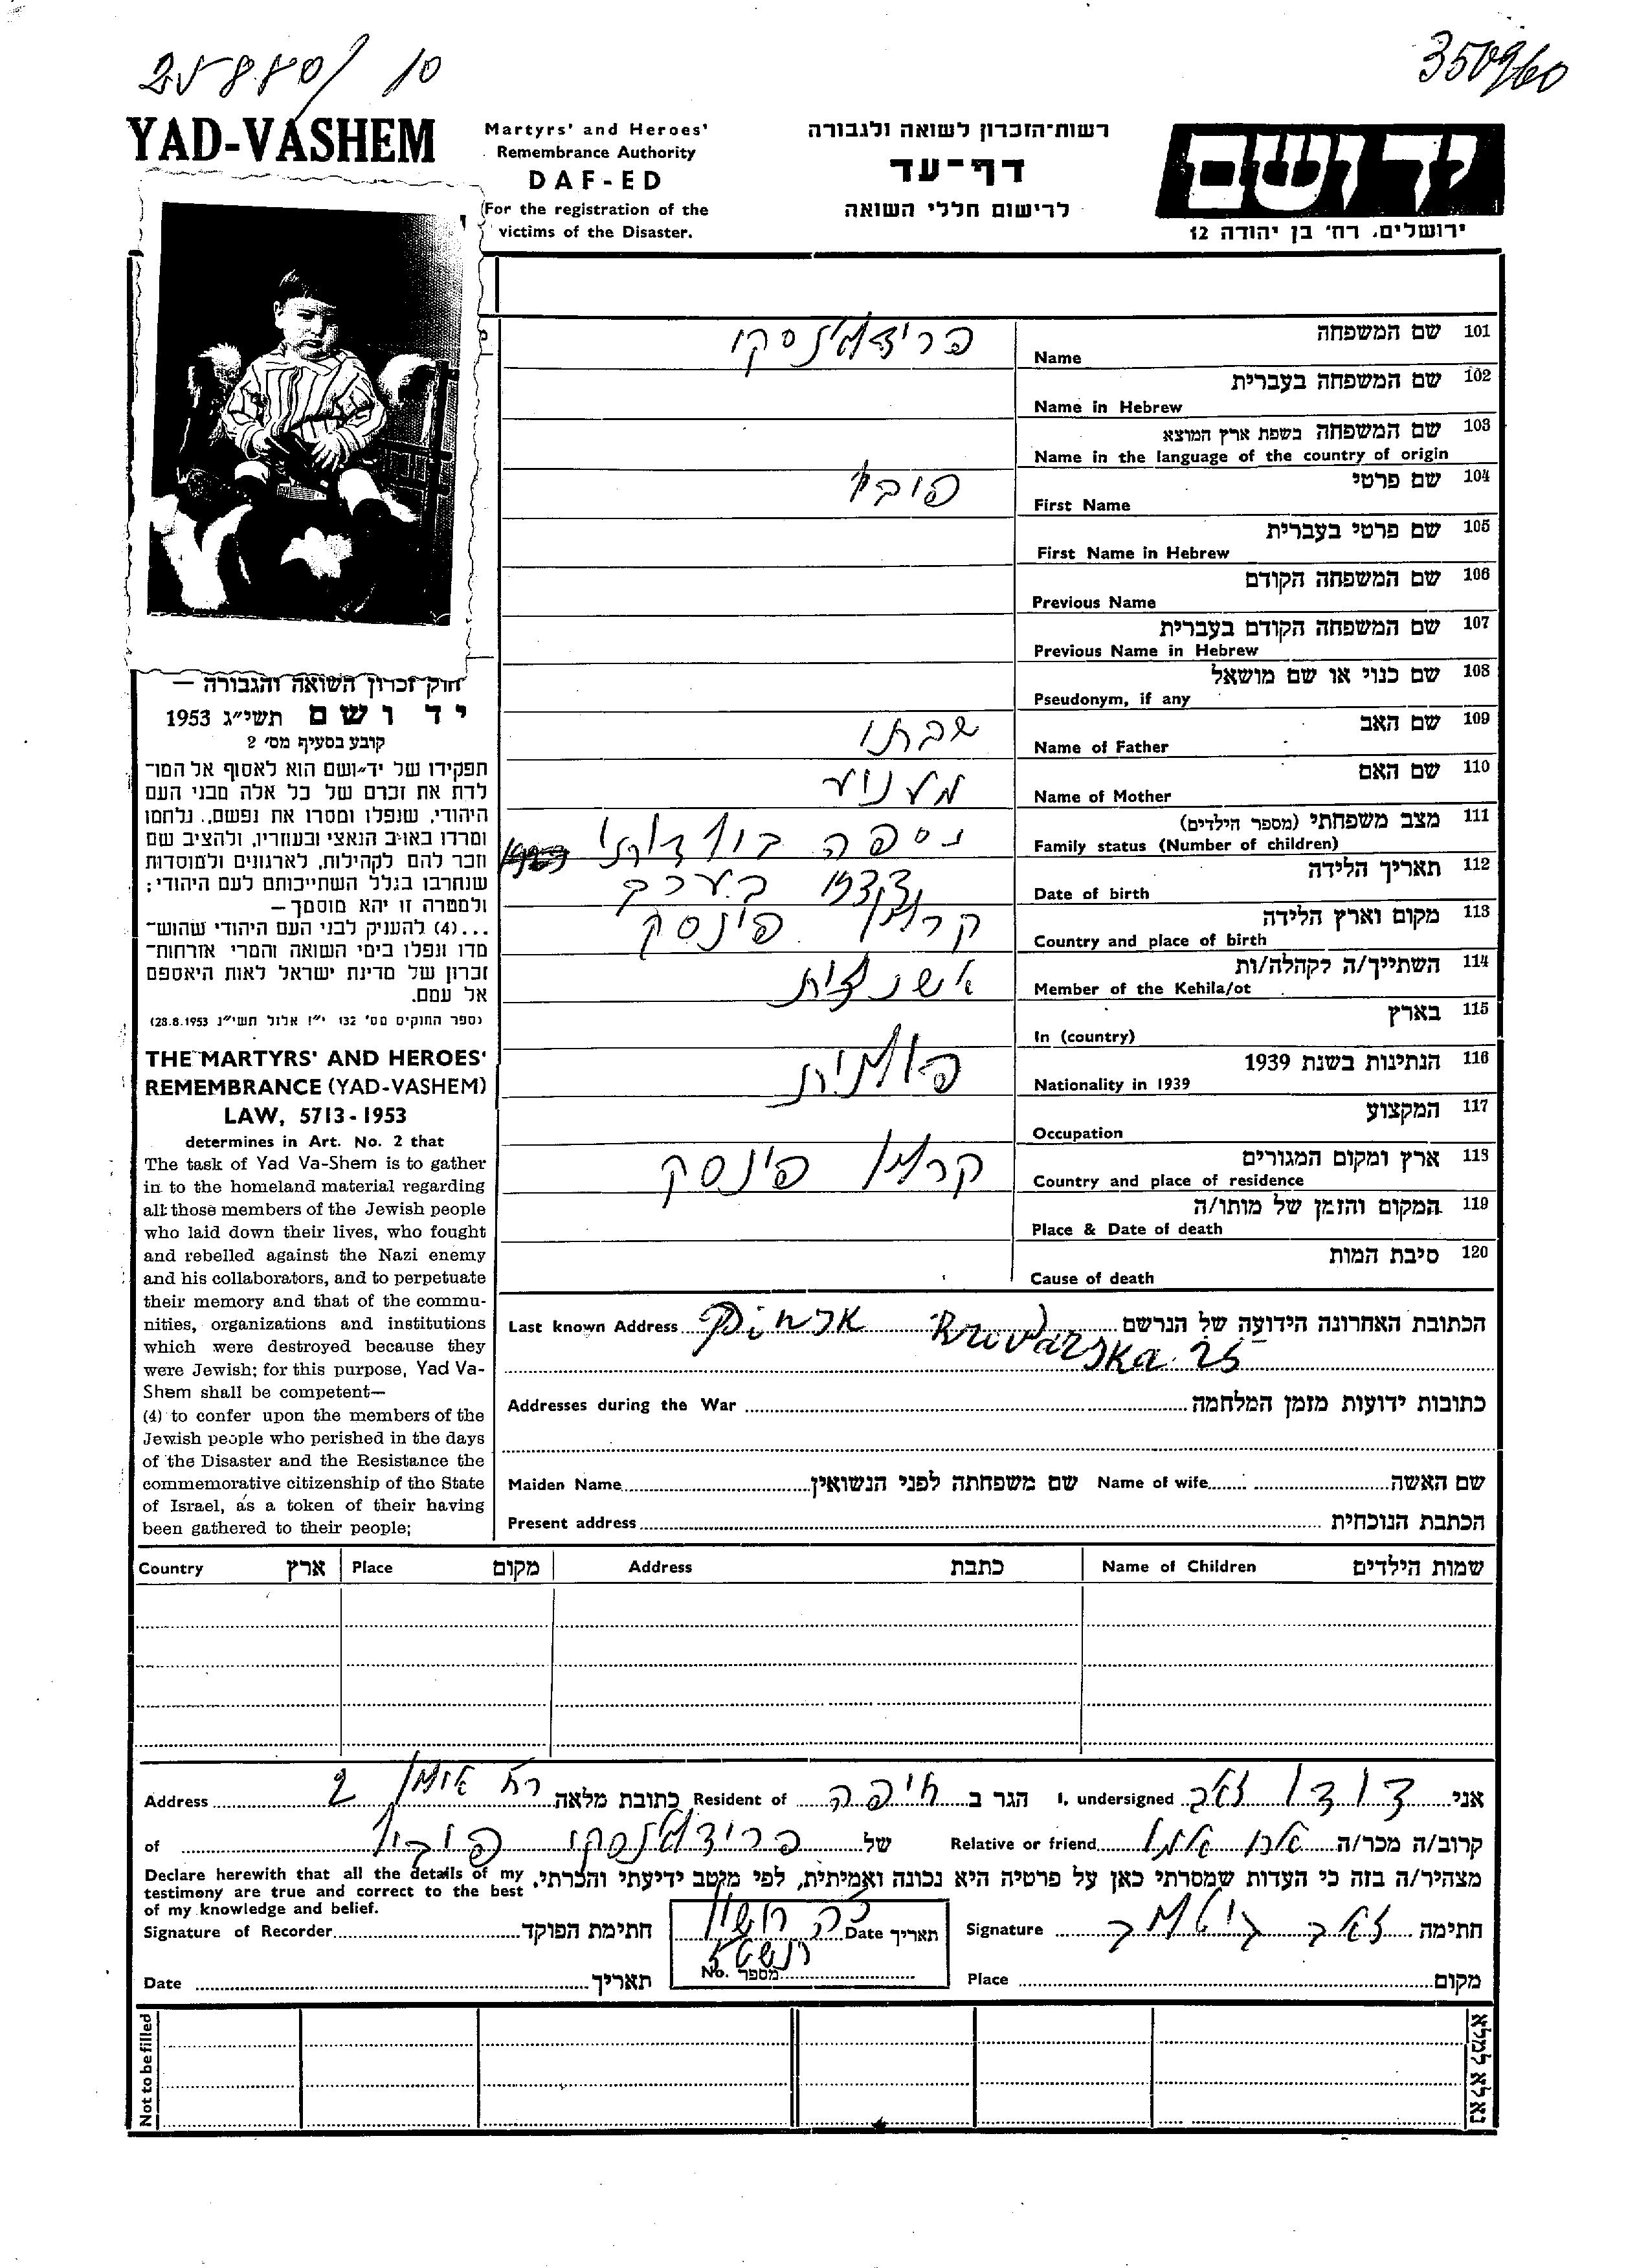 25880/10
350960
YAD-VASHEM
Martyrs' and Heroes'
Remembrance Authority
DAF-ED
(For the registration of the
victims of the Disaster.
רשות-הזכרון לשואה ולגבורה
דף-עד
לרישום חללי השואה
יד ושם
ירושלים, רח' בן יהודה 12
101 שם המשפחה
Name
102 שם המשפחה בעברית
Name in Hebrew
103 שם המשפחה בשפת ארץ המוצא
Name in the language of the country of origin
104 שם פרטי
First Name
105 שם פרטי בעברית
First Name in Hebrew
106 שם המשפחה הקודם
Previous Name
107 שם המשפחה הקודם בעברית
Previous Name in Hebrew
108 שם כנוי או שם מושאל
Pseudonym, if any
109 שם האב
Name of Father
110 שם האם
Name of Mother
111 מצב משפחתי (מספר הילדים)
Family status (Number of children)
112 תאריך הלידה
Date of birth 1933 בערך
113 מקום וארץ הלידה
Country and place of birth פינסק
114 השתייך/ה לקהלה/ות
Member of the Kehila/ot
115 בארץ
In (country)
116 הנתינות בשנת 1939
Nationality in 1939
117 המקצוע
Occupation
118 ארץ ומקום המגורים
Country and place of residence פינסק
119 המקום והזמן של מותו/ה
Place & Date of death
120 סיבת המות
Cause of death
חוק זכרון השואה והגבורה –
יד ושם תשי"ג 1953
קובע בסעיף מס' 2
תפקידו של יד-ושם הוא לאסוף אל המו-
לדת את זכרם של כל אלה מבני העם
היהודי, שנפלו ומסרו את נפשם, נלחמו
ומרדו באויב הנאצי ובעוזריו, ולהציב שם
וזכר להם לקהילות, לארגונים ולמוסדות
שנחרבו בגלל השתייכותם לעם היהודי;
ולמטרה זו יהא מוסמך –
...(4) להעניק לבני העם היהודי שהוש-
מדו ונפלו בימי השואה והמרי אזרחות-
זכרון של מדינת ישראל לאות היאספם
אל עמם.
(ספר החוקים מס' 132 י"ז אלול תשי"ג 28.8.1953)
THE MARTYRS' AND HEROES'
REMEMBRANCE (YAD-VASHEM)
LAW, 5713-1953
determines in Art. No. 2 that
The task of Yad Va-Shem is to gather
in to the homeland material regarding
all those members of the Jewish people
who laid down their lives, who fought
and rebelled against the Nazi enemy
and his collaborators, and to perpetuate
their memory and that of the commu-
nities, organizations and institutions
which were destroyed because they
were Jewish; for this purpose, Yad Va-
Shem shall be competent—
(4) to confer upon the members of the
Jewish people who perished in the days
of the Disaster and the Resistance the
commemorative citizenship of the State
of Israel, as a token of their having
been gathered to their people;
הכתובת האחרונה הידועה של הנרשם Last known Address
Browarska 25
כתובות ידועות מזמן המלחמה Addresses during the War
שם האשה Name of wife שם משפחתה לפני הנשואין Maiden Name
הכתבת הנוכחית Present address
שמות הילדים Name of Children כתבת Address מקום Place ארץ Country
אני I, undersigned הגר ב חיפה Resident of כתובת מלאה Address
קרוב/ה מכר/ה Relative or friend של of
מצהיר/ה בזה כי העדות שמסרתי כאן על פרטיה היא נכונה ואמיתית, לפי מיטב ידיעתי והכרתי.
Declare herewith that all the details of my
testimony are true and correct to the best
of my knowledge and belief.
חתימה Signature תאריך Date חתימת הפוקד Signature of Recorder
מקום Place מספר No. תאריך Date
Not to be filled
נא לא למלא